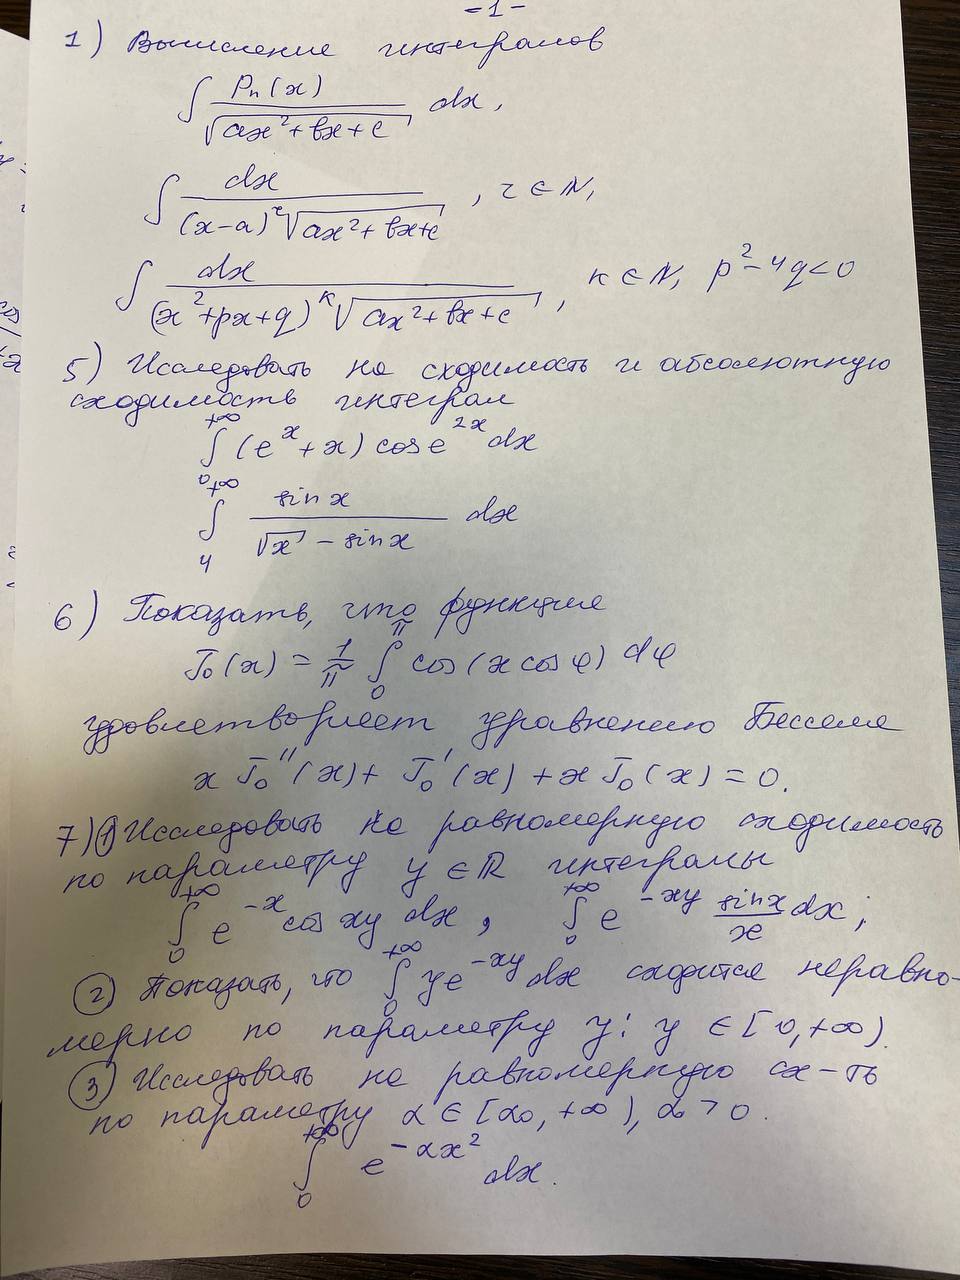 -1-
1) Вычисление интегралов
∫ Pn(x) / √(ax²+bx+c) dx,
∫ dx / (x-a)^r √(ax²+bx+c), r ∈ N,
∫ dx / (x²+px+q)^k √(ax²+bx+c), k ∈ N, p²-4q<0
5) Исследовать на сходимость и абсолютную
сходимость интеграл
∫₀^{+∞} (e^x + x) cos e^{2x} dx
∫₄^{+∞} sin x / (√x - sin x) dx
6) Показать, что функция
J₀(x) = 1/π ∫₀^π cos(x cos φ) dφ
удовлетворяет уравнению Бесселя
x J₀''(x) + J₀'(x) + x J₀(x) = 0.
7) ① Исследовать на равномерную сходимость
по параметру y ∈ ℝ интегралы
∫₀^{+∞} e^{-x} cos xy dx, ∫₀^{+∞} e^{-xy} sin x / x dx;
② Показать, что ∫₀^{+∞} y e^{-xy} dx сходится неравно-
мерно по параметру y: y ∈ [0, +∞).
③ Исследовать на равномерную сх-ть
по параметру α ∈ [α₀, +∞), α₀ > 0.
∫₀^{+∞} e^{-αx²} dx.